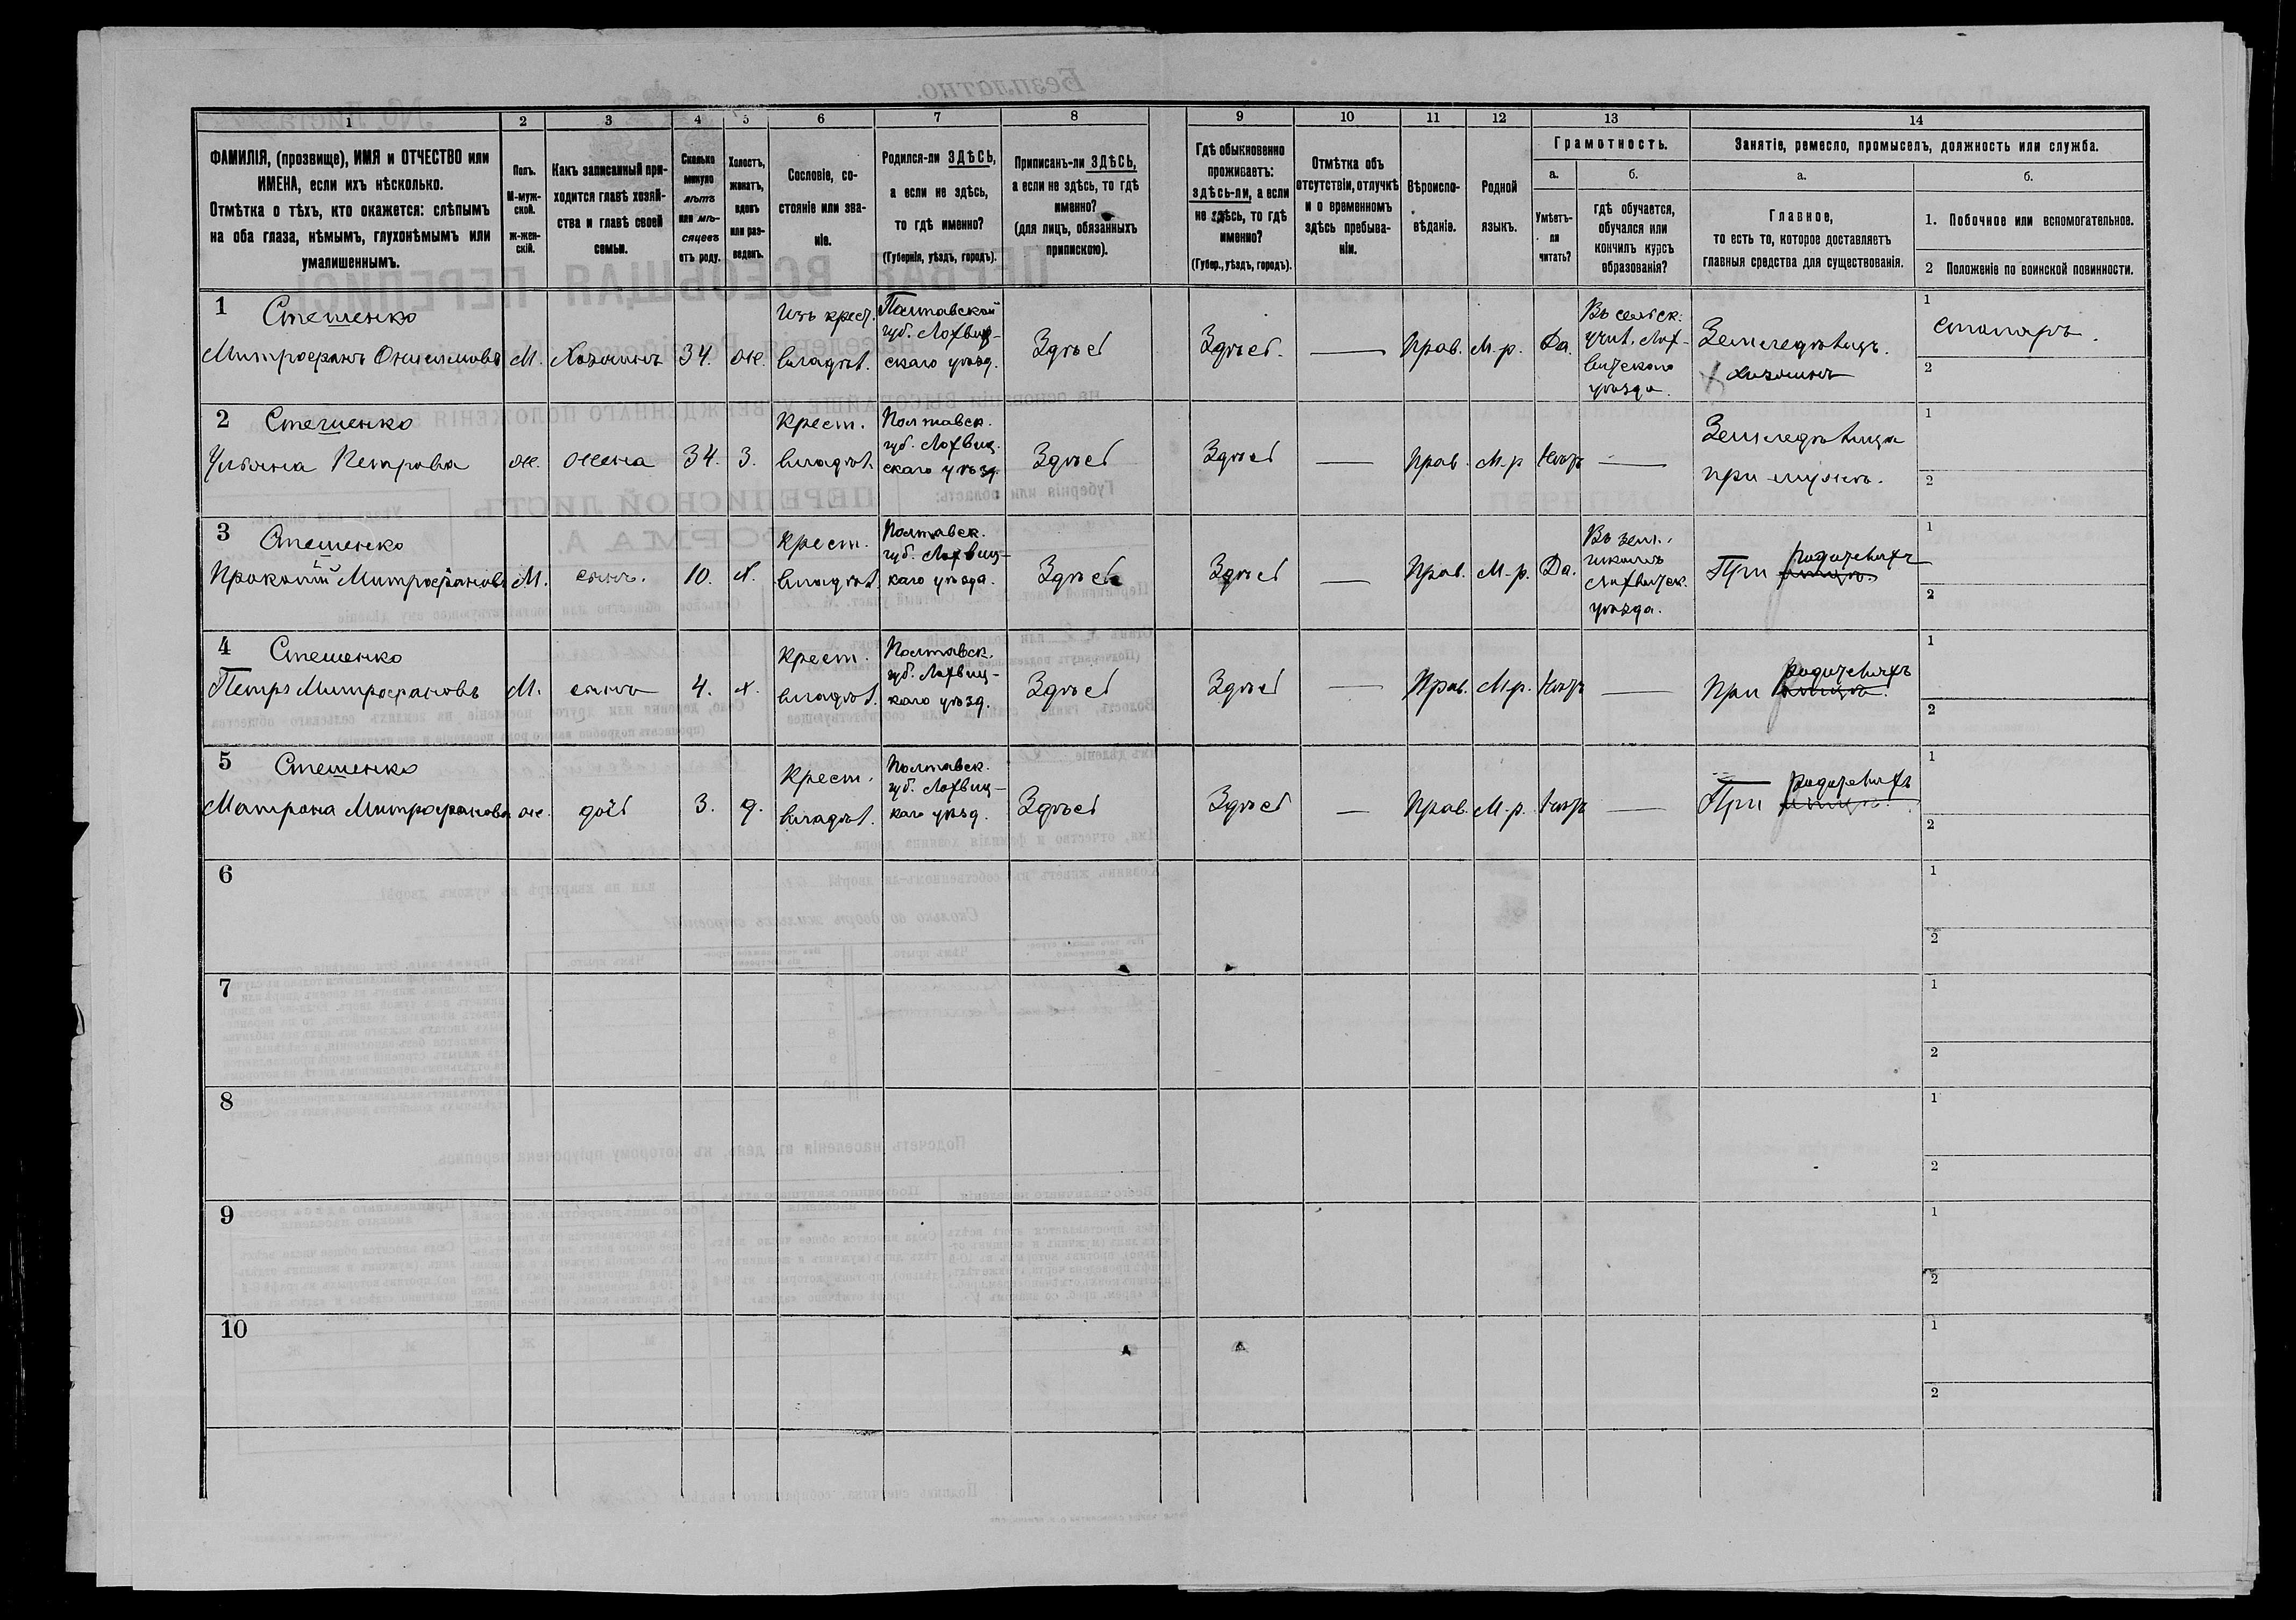 1
2
3
4
5
6
7
8
9
10
11
12
13
14
ФАМИЛІЯ, (прозвище), ИМЯ и ОТЧЕСТВО или
ИМЕНА, если ихъ нѣсколько.
Отмѣтка о тѣхъ, кто окажется: слѣпымъ
на оба глаза, нѣмымъ, глухонѣмымъ или
умалишеннымъ.
Полъ.
М-муж-
ской.
ж-жен-
скій.
Какъ записанный при-
ходится главѣ хозяй-
ства и главѣ своей
семьи.
Сколько
минуло
лѣтъ
или мѣ-
сяцевъ
отъ роду.
Холостъ,
женатъ,
вдовъ
или раз-
веденъ.
Сословіе, со-
стояніе или зва-
ніе.
Родился-ли ЗДѢСЬ,
а если не здѣсь,
то гдѣ именно?
(Губернія, уѣздъ, городъ).
Приписанъ-ли ЗДѢСЬ,
а если не здѣсь, то гдѣ
именно?
(для лицъ, обязанныхъ
припискою).
Гдѣ обыкновенно
проживаетъ:
здѣсь-ли, а если
не здѣсь, то гдѣ
именно?
(Губер., уѣздъ, городъ).
Отмѣтка объ
отсутствіи, отлучкѣ
и о временномъ
здѣсь пребыва-
ніи.
Вѣроиспо-
вѣданіе.
Родной
языкъ.
Грамотность.
а.
Умѣетъ-
ли
читать?
б.
гдѣ обучается,
обучался или
кончилъ курсъ
образованія?
Занятіе, ремесло, промыселъ, должность или служба.
а.
Главное,
то есть то, которое доставляетъ
главныя средства для существованія.
б.
1. Побочное или вспомогательное.
2 Положеніе по воинской повинности.
1
Стешенко
Митрофанъ Онисимовъ
М.
Хозяинъ
34.
ж.
Изъ крест.
владѣл.
Полтавской
губ. Лохвиц-
скаго уѣзд.
Здѣсь
Здѣсь.
—
Прав.
М-р.
Да.
Въ сельск.
учил. Лох-
вицскаго
уѣзда.
Земледѣлецъ.
хозяинъ
1
столяръ.
2
2
Стешенко
Ульяна Петрова
ж.
жена
34.
З.
Крест.
владѣл.
Полтавск.
губ. Лохвиц.
скаго уѣзд
Здѣсь
Здѣсь
—
Прав.
М-р
Нѣтъ
—
Земледѣлица
при мужѣ.
1
2
3
Стешенко
Прокопій Митрофановъ
М.
сынъ.
10.
х.
Крест.
владѣл.
Полтавск.
губ. Лохвиц-
каго уѣзда.
Здѣсь
Здѣсь
—
Прав.
М-р.
Да.
Въ зем.
школѣ
Лохвицск.
уѣзда.
При родителяхъ
1
2
4
Стешенко
Петръ Митрофановъ
М.
сынъ
4.
х.
Крест.
владѣл.
Полтавск.
губ. Лохвиц-
каго уѣзд.
Здѣсь
Здѣсь
—
Прав.
М-р.
Нѣтъ
—
При родителяхъ
1
2
5
Стешенко
Матрона Митрофанова
ж.
дочь
3.
д.
Крест.
владѣл.
Полтавск.
губ. Лохвиц-
каго уѣзд.
Здѣсь
Здѣсь
—
Прав.
М-р.
Нѣтъ
—
При родителяхъ
1
2
6
1
2
7
1
2
8
1
2
9
1
2
10
1
2